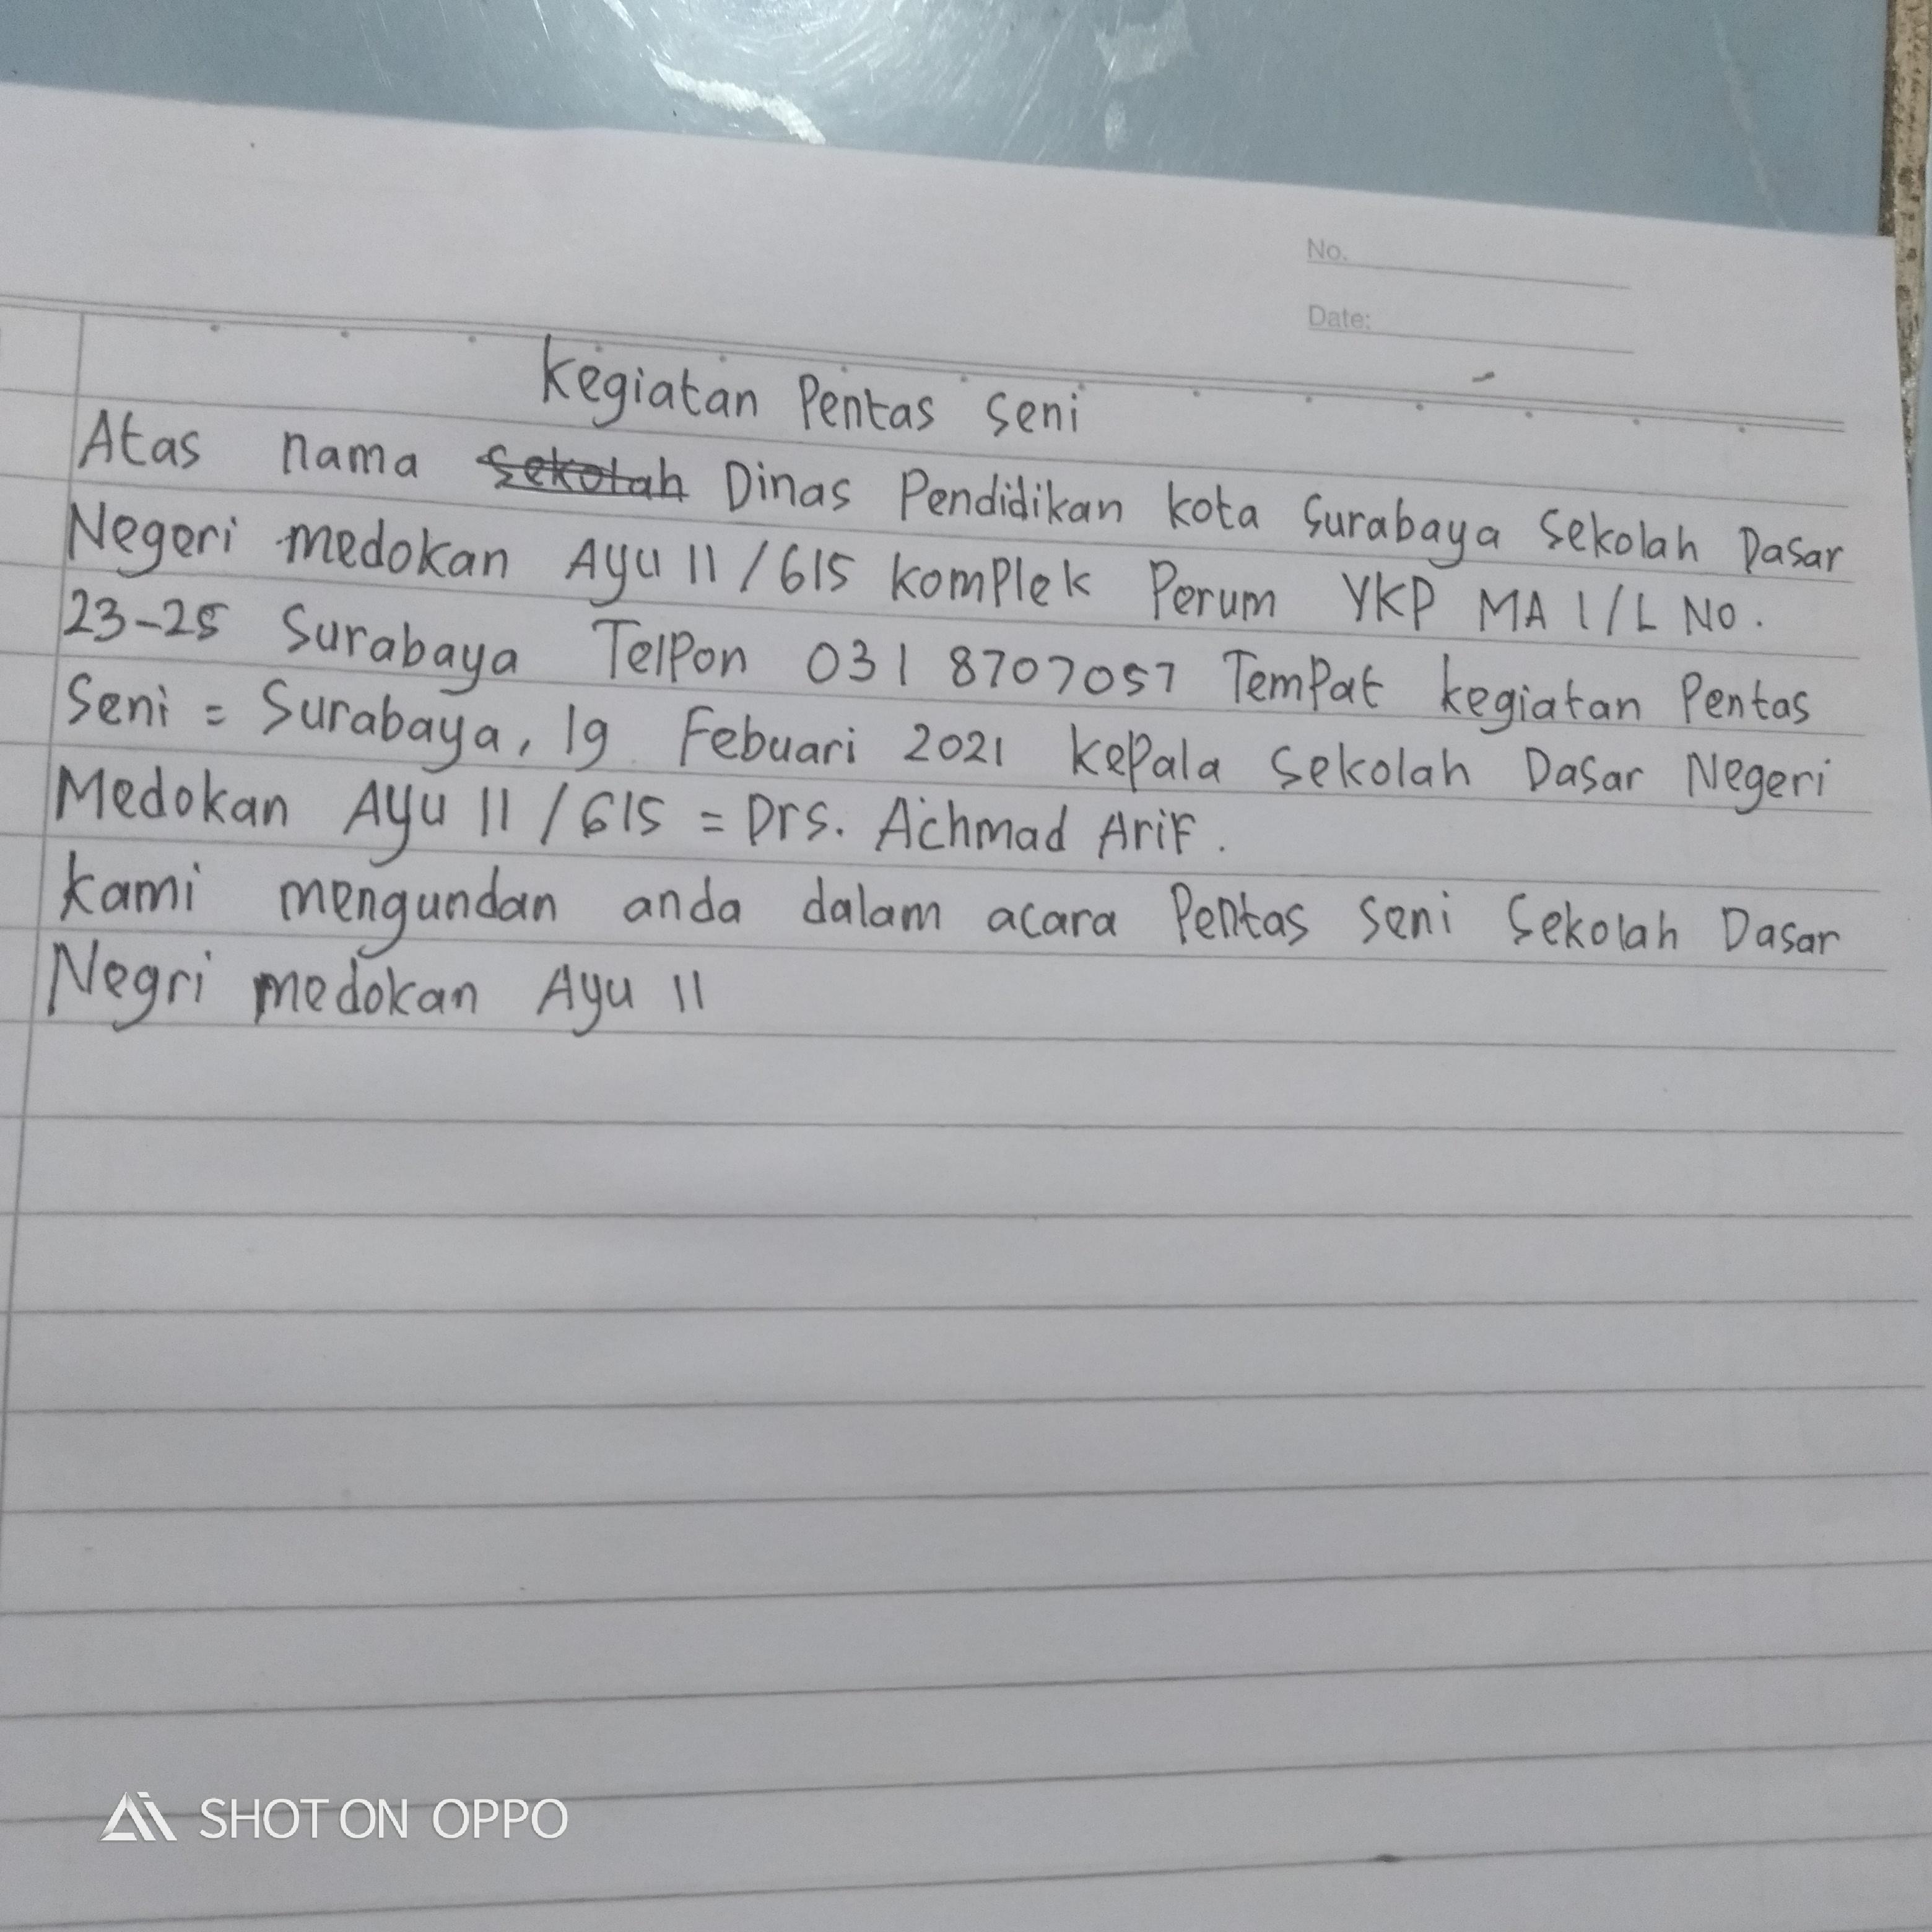 No.
Date:
Kegiatan Pentas Seni
Atas nama Sekolah Dinas Pendidikan kota Surabaya Sekolah Dasar
Negeri medokan Ayu II / 615 Komplek Perum YKP MA I/L NO.
23-25 Surabaya Telpon 031 8707057 Tempat kegiatan Pentas
Seni = Surabaya, 19 Febuari 2021 Kepala Sekolah Dasar Negeri
Medokan Ayu II / 615 = Drs. Achmad Arif.
Kami mengundan anda dalam acara Pentas Seni Sekolah Dasar
Negri medokan Ayu II
SHOT ON OPPO